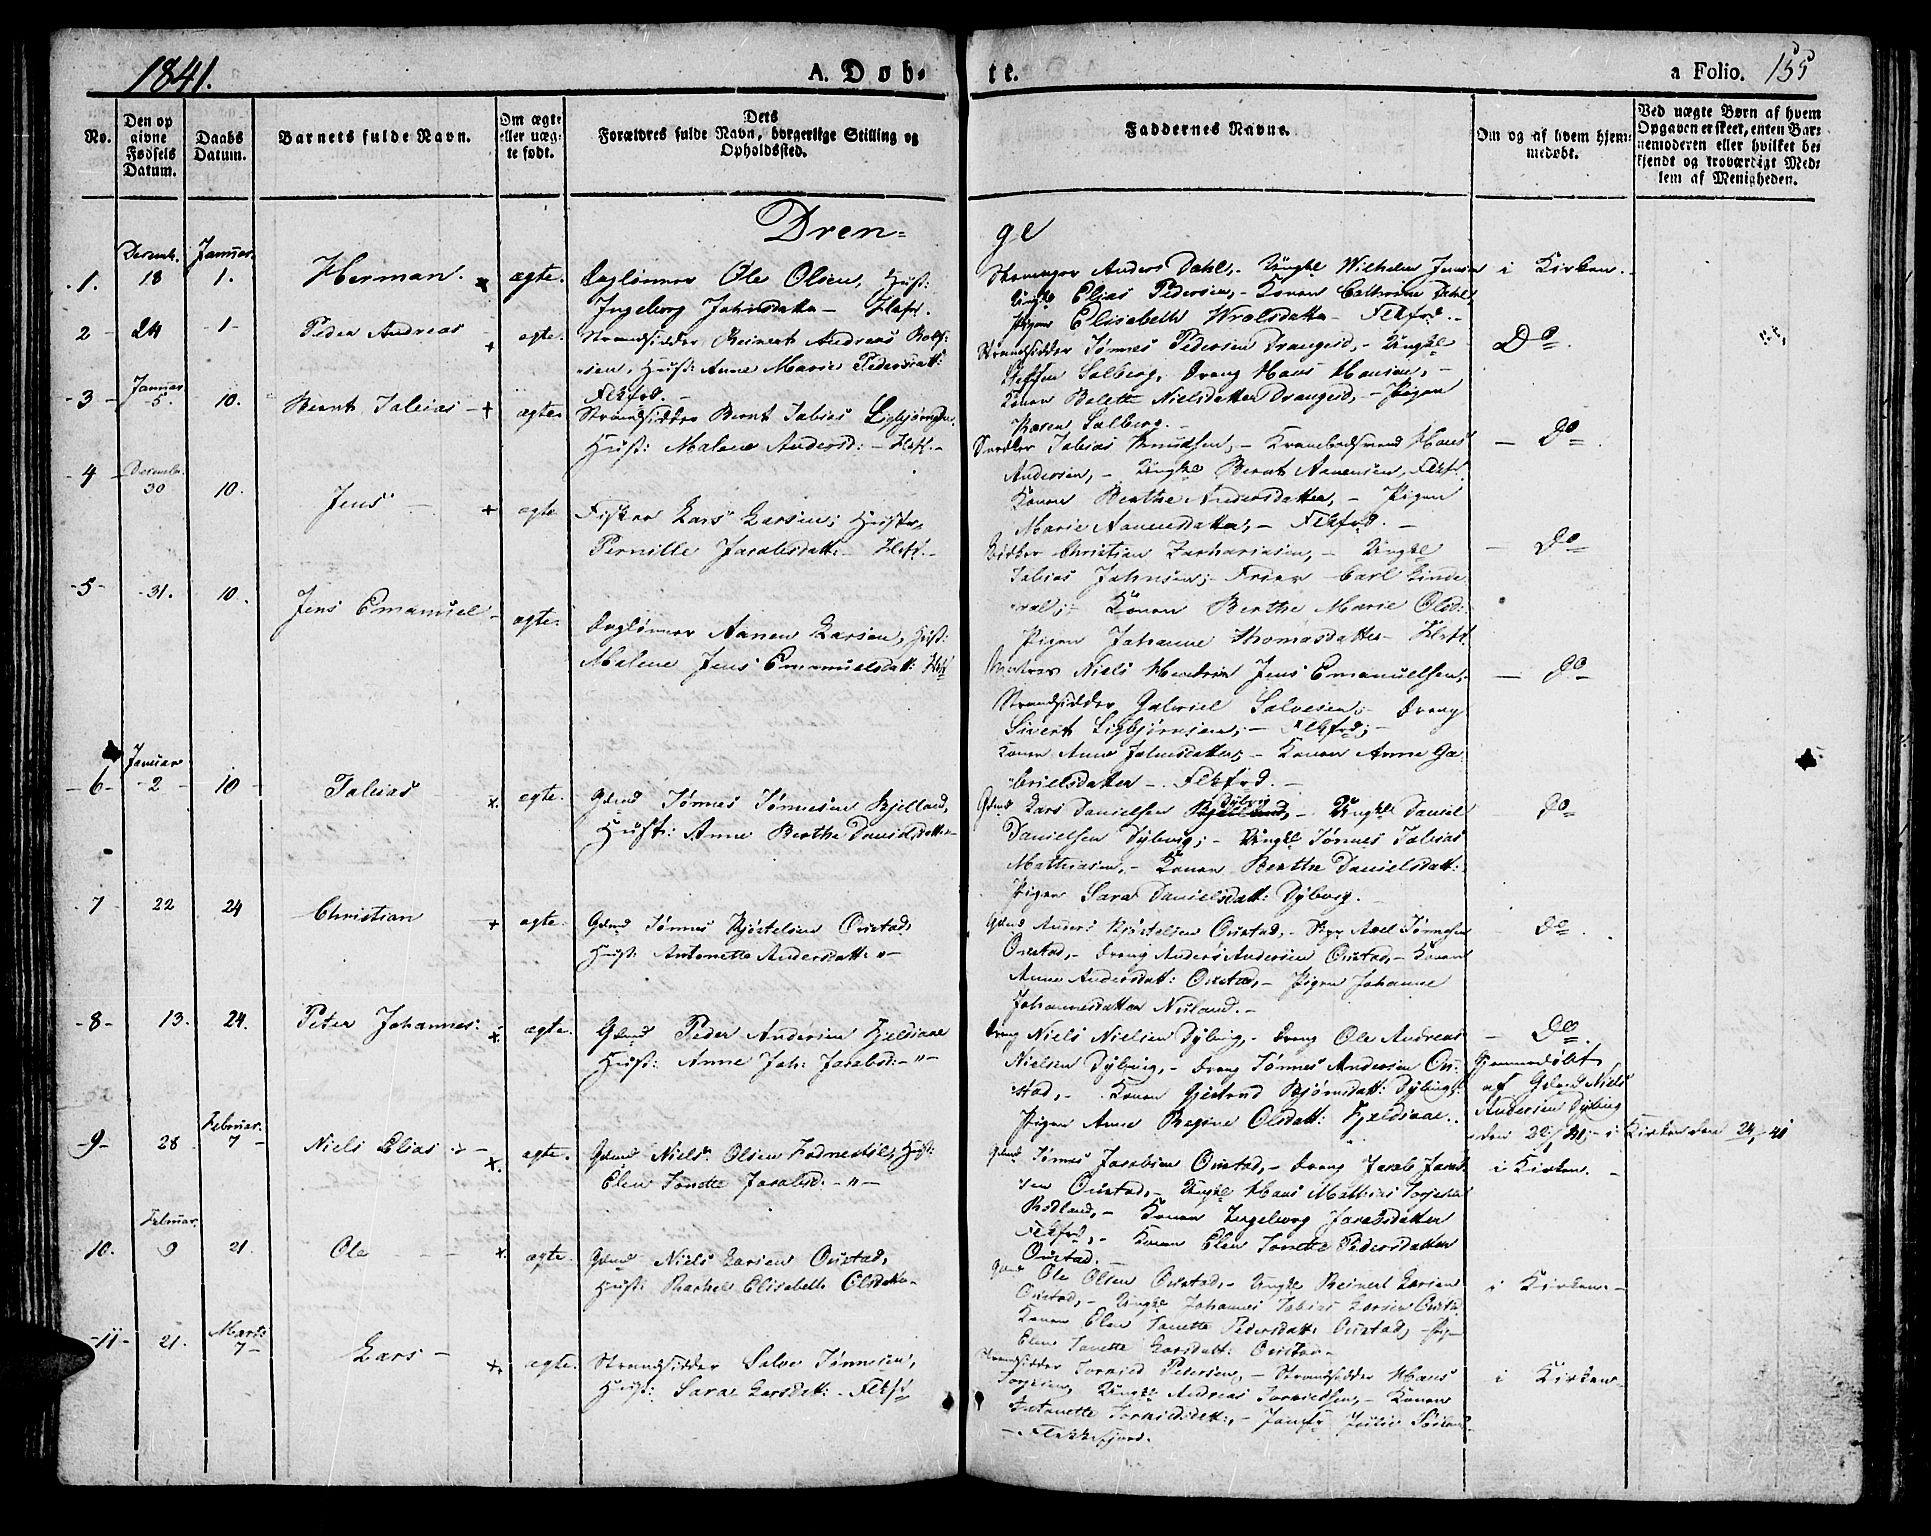 1841.
A. Døb-
te.
a Folio. 155
No.
Den op
givne
Fødsels
Datum.
Daabs
Datum.
Barnets fulde Navn.
Om ægte
eller uæg-
te født.
Dets
Forældres fulde Navn, borgerlige Stilling og
Opholdssted.
Faddernes Navne.
Om og af hvem hjem-
medøbt.
Ved uægte Børn af hvem
Opgaven er skeet, enten Bar-
nemoderen eller hvilket be-
kjendt og troværdigt Med-
lem af Menigheden.
Dren-
ge
1. Decemb. 18 Januar. 1. Herman. ægte. Dagleiner Ole Olsen, Hust:
Ingeborg Jahnsdatter
Anders Dahl, - Ungkl Wilhelm Jensen
Ungkl Elias Pedersen, - Konen Cathrine Dahl
Pigen Elisabeth - Flkfrd. -
i Kirken.
2 - 24 - 1 - Peder Andreas ægte. Strandsidder Reinert Andreas
Hust: Anne Marie Pedersdatt:
Flkfrd. -
Strandsidder Tønnes Pedersen Drangeid, - Ungkl
Steffen Salberg, Dreng Hans Hansen, -
Konen Bolette Nielsdatter Drangeid, - Pigen
Karen Salberg. -
Do.
3 - Januar 5. 10. Bernt Tobias ægte. Strandsidder Bernt Tobias
Hust: Malene Andersd: -
Tobias Knudsen, - Hans
Andersen, - Ungkl Bernt Aanensen, Flkf.
Konen Berthe Andersdatter, - Pigen
Marie Aanensdatter, - Flkfrd. -
Do.
4 - Decembr. 30 10. Jens ægte Fisker Lars Larsen; Hustr.
Pernille Jacobsdatt: -
Christian Zachariasen, - Ungkl
Tobias Jahnsen; Carl Linde-
Konen Berthe Marie Olsd:
Pigen Johanne Thomasdatter
Do
-5- 31. 10. Jens Emanuel - ægte. Dagleiner Aanen Larsen, Hust:
Malene Jens Emanuelsdatt:
Matros Niels Hendrik Jens Emanuelsen,
Strandsidder Gabriel Salvesen; - Dreng
Sivert Sigbjørnsen; - Flkfrd; -
Konen Anne Jahnsdatter, - Konen Anne Ga-
brielsdatter - Flkfrd. -
Do
- 6 - Januar - 2 - 10 - Tobias ægte. Gdmd Tønnes Tønnesen Kjelland,
Hust: Anne Berthe Danielsdatt:
Gdmd Lars Danielsen Dybvig, - Ungkl Daniel
Danielsen Dybvig; - Ungkl Tønnes Tobias
Mathiasen, - Konen Berthe Danielsdatt:
Pigen Sara Danielsdatt: Dybvig. -
Do
7 - 22 24 Christian ægte. Gdmd Tønnes Kjøstelsen Oustad,
Hust: Antonette Andersdatt: -"-
Gdmd Anders Kjøstelsen Oustad, - Axel Tønnesen
Oustad, - Dreng Anders Andersen Oustad, - Konen
Anne Andersdatt: Oustad, - Pigen Johanne
Johannesdatter Nuland. -
Do.
-8- 13. 24. Peter Johannes: ægte. Gdmd Peder Andersen Fjeldsaae
Hust: Anne Joh: Jacobsd: -"-
Dreng Niels Nielsen Dybvig, - Dreng Ole Andreas
Nielsen Dybvig, - Dreng Tønnes Andersen Ou-
stad, - Konen Gjertrud Bjørnsdatt: Dybvig;
Pigen Anne Regine Olsdatt: Fjeldsaae.
Do.
Hjemmedøbt
af Gdmd Niels
Andersen Dybvig
den 22/1 41, - i Kirken den 24/1 - 41
-9- 28 Februar. 7 - Niels Elias ægte. Gdmd Niels Olsen Hust:
Elen Tonette Jacobsd. -"-
Gdmd Tønnes Jacobsen Oustad, - Dreng Jacob Jacob-
sen Oustad, - Ungkl Hans Mathias
Rødland, - Konen Ingeborg Jacobsdatter
Flkfrd, - Konen Elen Tonette Pedersdatter
Oustad. -
i Kirken. -
10. Februar. 9 21. Ole - ægte. Gdmd Niels Larsen Oustad,
Hust: Rachel Elisabeth Olsdatter
Gdmd Ole Olsen Oustad, - Ungkl Reinert Larsen
Oustad, - Ungkl Johannes Tobias Larsen Oustad
Konen Elen Tonette Pedersdatt: Oustad, - Pigen
Elen Tonette Larsdatt: Oustad -
i Kirken. -
-11- 21. Marts 7 - Lars - ægte. Strandsidder Salve Tønnesen,
Hust: Sara Larsdatt: -
Strandsidder Torkild Pedersen, - Strandsidder Hans
Ungkl Andreas Torkildsen, - Konen
Antonette Torkildsdatt:, - Jomfr
- Flekkefjord. -
i Kirken -